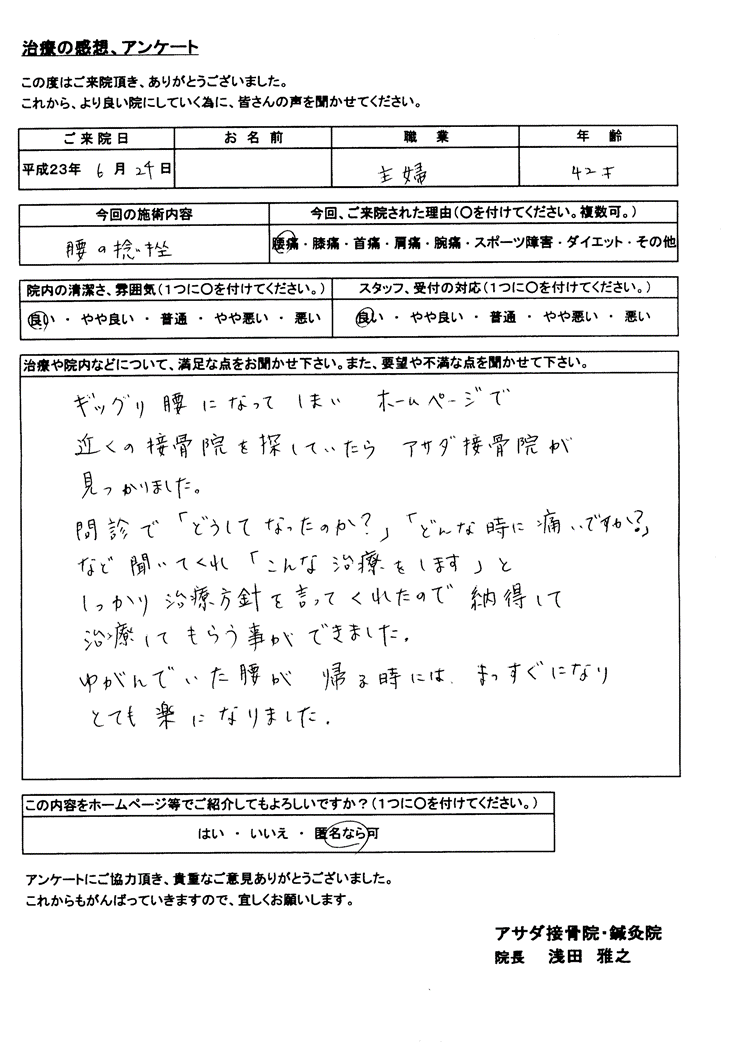 治療の感想、アンケート
この度はご来院頂き、ありがとうございました。
これから、より良い院にしていく為に、皆さんの声を聞かせてください。
ご来院日 お名前 職業 年齢
平成23年 6月 24日 主婦 42才
今回の施術内容 今回、ご来院された理由(〇を付けてください。複数可。)
腰の捻挫 腰痛・膝痛・首痛・肩痛・腕痛・スポーツ障害・ダイエット・その他
院内の清潔さ、雰囲気(1つに〇を付けてください。) スタッフ、受付の対応(1つに〇を付けてください。)
良い ・ やや良い ・ 普通 ・ やや悪い ・ 悪い 良い ・ やや良い ・ 普通 ・ やや悪い ・ 悪い
治療や院内などについて、満足な点をお聞かせ下さい。また、要望や不満な点を聞かせて下さい。
ギッグリ腰になってしまい ホームページで
近くの接骨院を探していたら アサダ接骨院が
見つかりました。
問診で「どうしてなったのか?」「どんな時に痛いですか?」
など聞いてくれ「こんな治療をします」と
しっかり治療方針を言ってくれたので 納得して
治療してもらう事ができました。
ゆがんでいた腰が 帰る時には、まっすぐになり
とても楽になりました。
この内容をホームページ等でご紹介してもよろしいですか?(1つに〇を付けてください。)
はい ・ いいえ ・ 匿名なら可
アンケートにご協力頂き、貴重なご意見ありがとうございました。
これからもがんばっていきますので、宜しくお願いします。
アサダ接骨院・鍼灸院
院長 浅田 雅之